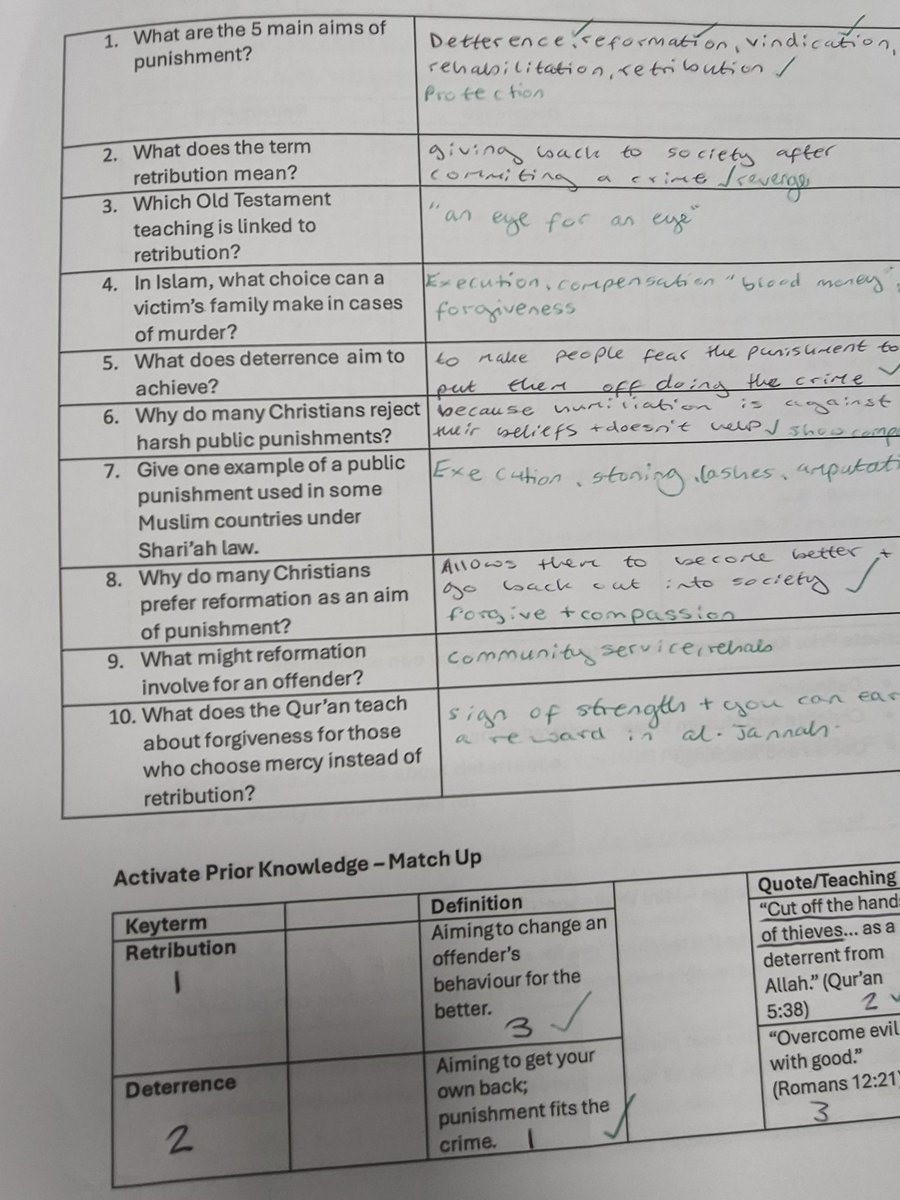 1. What are the 5 main aims of
punishment?
Detterence, reformation, vindication,
rehabilitation, retribution
Protection
2. What does the term
retribution mean?
giving back to society after
commiting a crime revenge
3. Which Old Testament
teaching is linked to
retribution?
"an eye for an eye"
4. In Islam, what choice can a
victim's family make in cases
of murder?
Execution, compensation "blood money",
forgiveness
5. What does deterrence aim to
achieve?
to make people fear the punishment to
put them off doing the crime
6. Why do many Christians reject
harsh public punishments?
because humiliation is against
their beliefs + doesn't help show comp
7. Give one example of a public
punishment used in some
Muslim countries under
Shari'ah law.
Execution, stoning, lashes, amputati
8. Why do many Christians
prefer reformation as an aim
of punishment?
Allows them to become better +
go back out into society
forgive + compassion
9. What might reformation
involve for an offender?
community service, rehab
10. What does the Qur'an teach
about forgiveness for those
who choose mercy instead of
retribution?
sign of strength + you can ear
a reward in al-Jannah.
Activate Prior Knowledge – Match Up
Keyterm
Definition
Quote/Teaching
Retribution
1
Aiming to change an
offender's
behaviour for the
better.
3
"Cut off the hand
of thieves... as a
deterrent from
Allah." (Qur'an
5:38)
2
Deterrence
2
Aiming to get your
own back;
punishment fits the
crime.
1
"Overcome evil
with good."
(Romans 12:21)
3